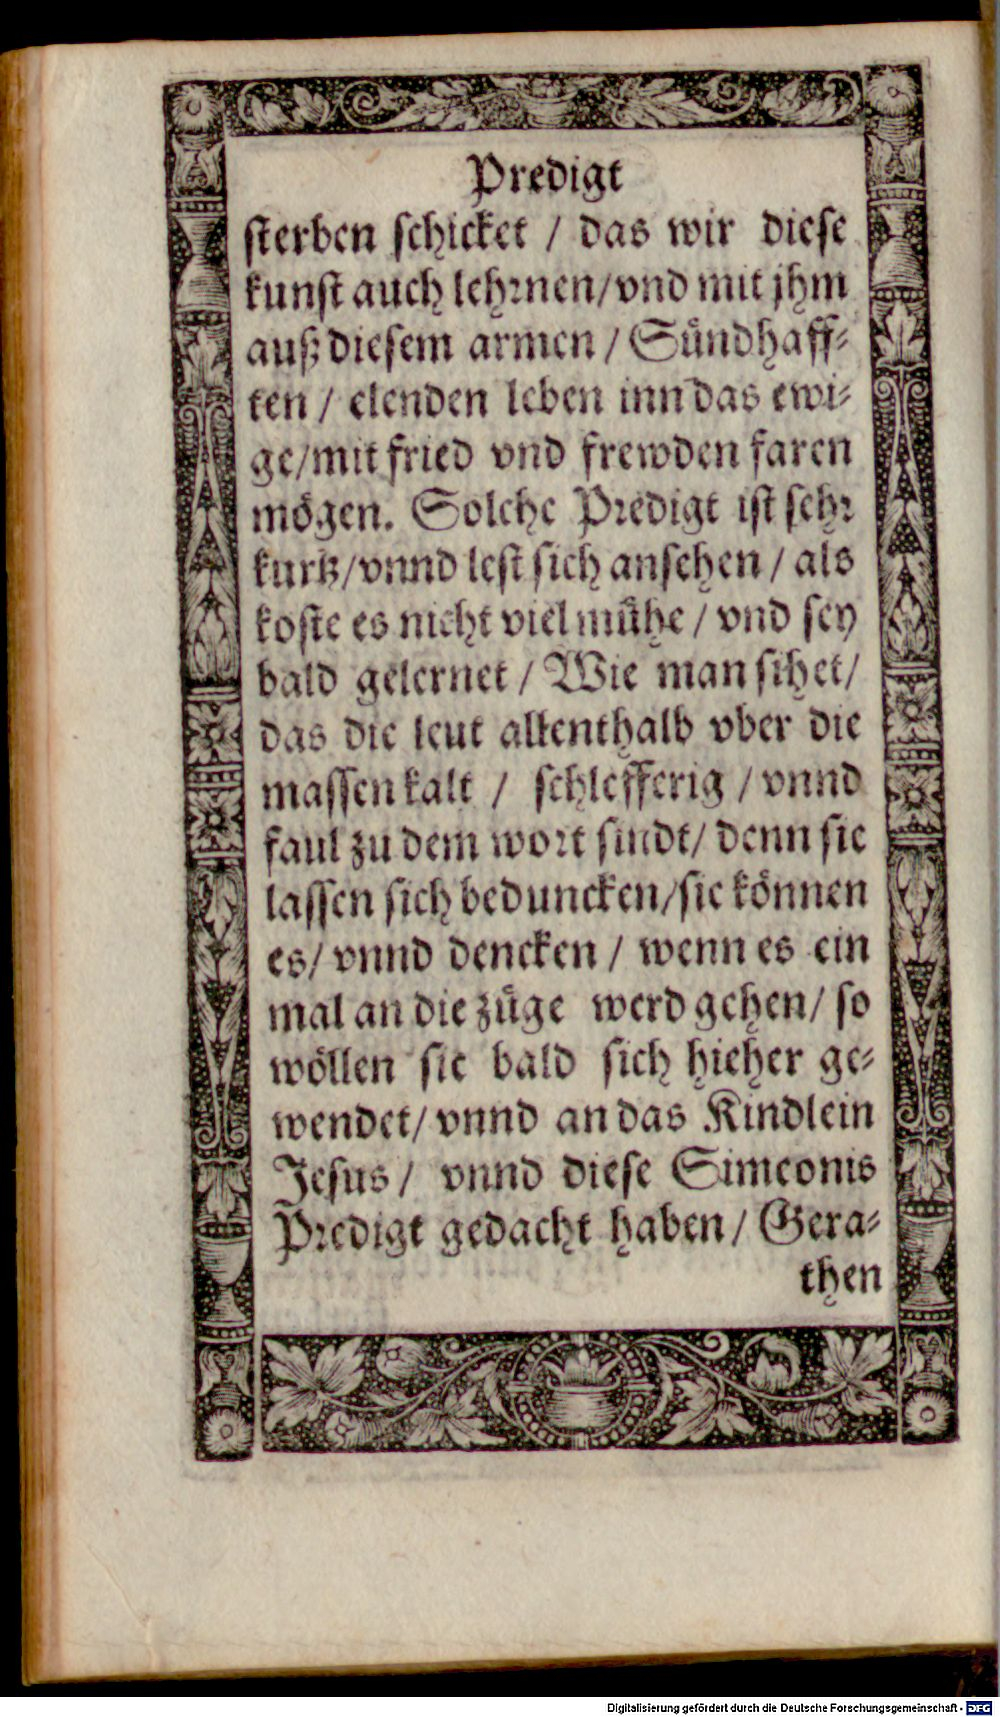 Predigt
sterben schicket / das wir diese
kunst auch lehrnen/vnd mit jhm
auß diesem armen / Sündhaff⸗
ten / elenden leben inn das ewi⸗
ge/mit fried vnd frewden faren
mögen. Solche Predigt ist sehr
kurtz/vnnd lest sich ansehen / als
koste es nicht viel mühe / vnd sey
bald gelernet / Wie man sihet/
das die leut allenthalb vber die
massen kalt / schlefferig / vnnd
faul zu dem wort sindt/ denn sie
lassen sich beduncken/sie können
es/ vnnd dencken / wenn es ein
mal an die züge werd gehen/ so
wöllen sie bald sich hieher ge⸗
wendet/ vnnd an das Kindlein
Jesus / vnnd diese Simeonis
Predigt gedacht haben/ Gera⸗
then
Digitalisierung gefördert durch die Deutsche Forschungsgemeinschaft - DFG